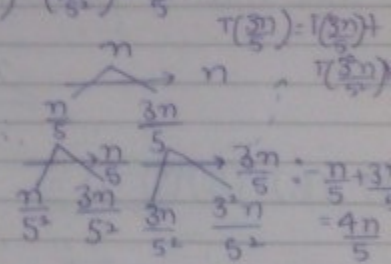 T(3n/5) = T(3n/5²) +
n → n T(3²n/5²)
n/5 3n/5
n/5 → 3n/5 = n/5 + 3n
n/5² 3n/5² 3n/5² 3²n/5² = 4n/5